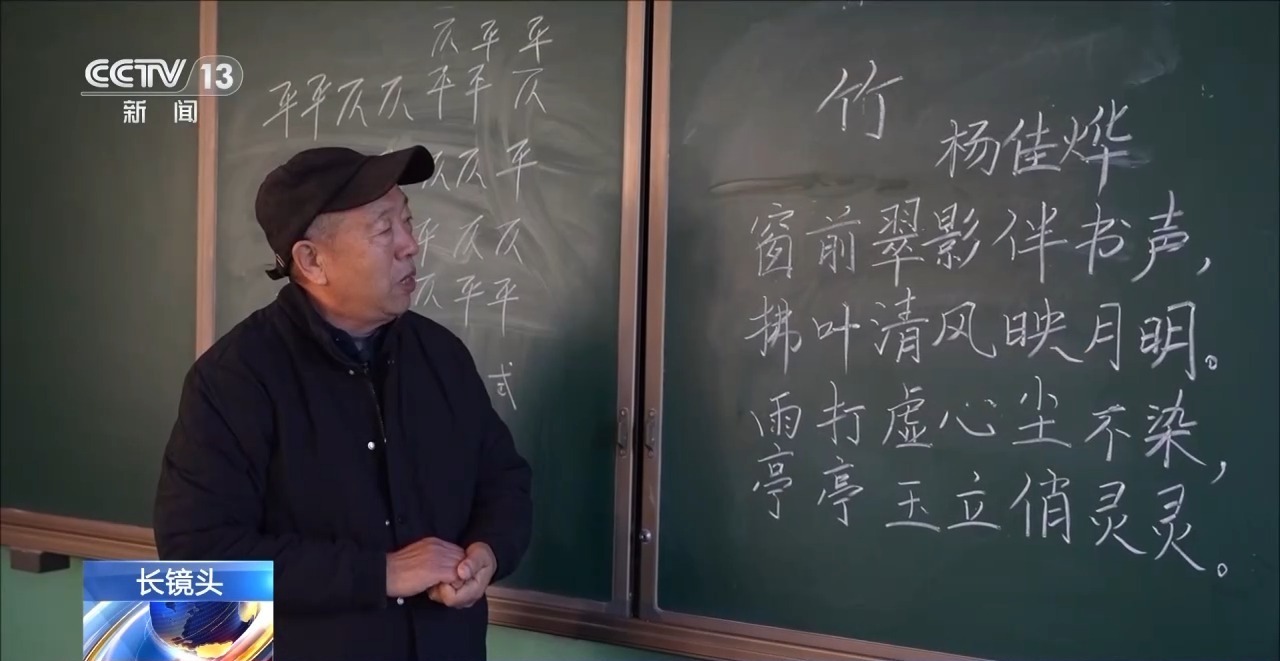 CCTV 13
新闻
仄平平
平平仄仄平平仄
仄仄平
平仄仄
仄平平
式
竹
杨佳烨
窗前翠影伴书声，
拂叶清风映月明。
雨打虚心尘不染，
亭亭玉立俏灵灵。
长镜头